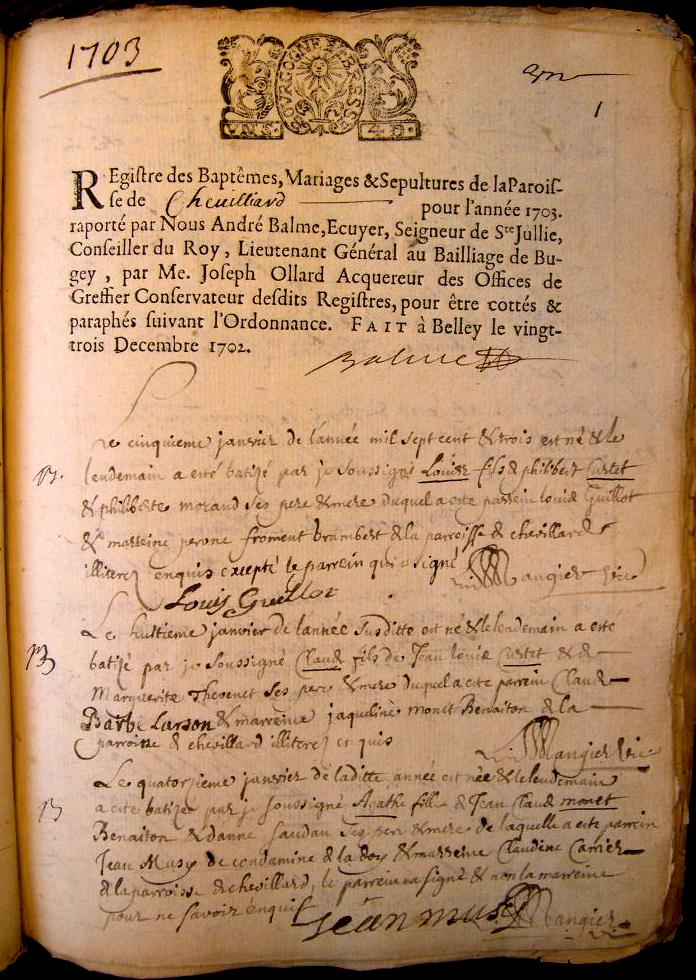 1703
BOURGOGNE BRESSE
1
REgistre des Baptêmes, Mariages & Sepultures de la Parois-
se de Chevilliard pour l'année 1703.
raporté par Nous André Balme, Ecuyer, Seigneur de Ste Jullie,
Conseiller du Roy, Lieutenant Général au Bailliage de Bu-
gey, par Me. Joseph Ollard Acquereur des Offices de
Greffier Conservateur desdits Registres, pour être cottés &
paraphés suivant l'Ordonnance. FAIT à Belley le vingt-
trois Decembre 1702.
Balme
Le cinquieme janvier de l'année mil sept cent & trois est né & le
B. lendemain a esté batizé par je soussigné Louis fils de philibert curtet
& philiberte morand ses pere & mere duquel a este parrein louis Guillot
& marreine perone froment brambert de la parroisse de chevillard
illiterez enquis excepté le parrein qui a signé Mangier vic
Louis Guillot
Le huitieme janvier de lannée susditte est né & le lendemain a esté
B batizé par je soussigné Claude fils de Jean louis curtet & de
Marguerite Thevenet ses pere & mere duquel a esté parrein Claude
Barbe Larson & marreine jaqueline monet Benaiton de la
parroisse de chevillard illiterez enquis Mangier vic
Le quatorzieme janvier de laditte année est née & le lendemain
B a esté batizé par je soussigné Agathe fille de Jean Claude monet
Benaiton & danne saudan ses pere & mere de laquelle a esté parrein
Jean Musy de condamine de la doy & marreine Claudine Carrier
de la parroisse de chevillard, le parrein a signé & non la marreine
pour ne savoir enquis Jean musy Mangier vic